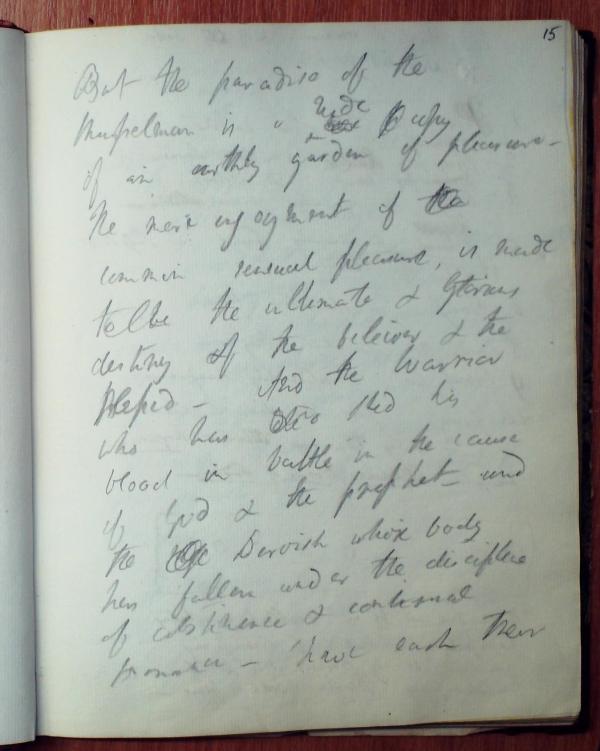 15
But the paradise of the
Musselman is a rude copy
of an earthly garden of pleasure -
The mere enjoyment of the
common sensual pleasure, is made
to be the ultimate & glorious
destiny of the beleiver & the
blessed - And the warrior
who has shed his
blood in battle in the cause
of God & the prophet - and
the Dervish whose body
has fallen under the discipline
of abstinence & continual
- have each their